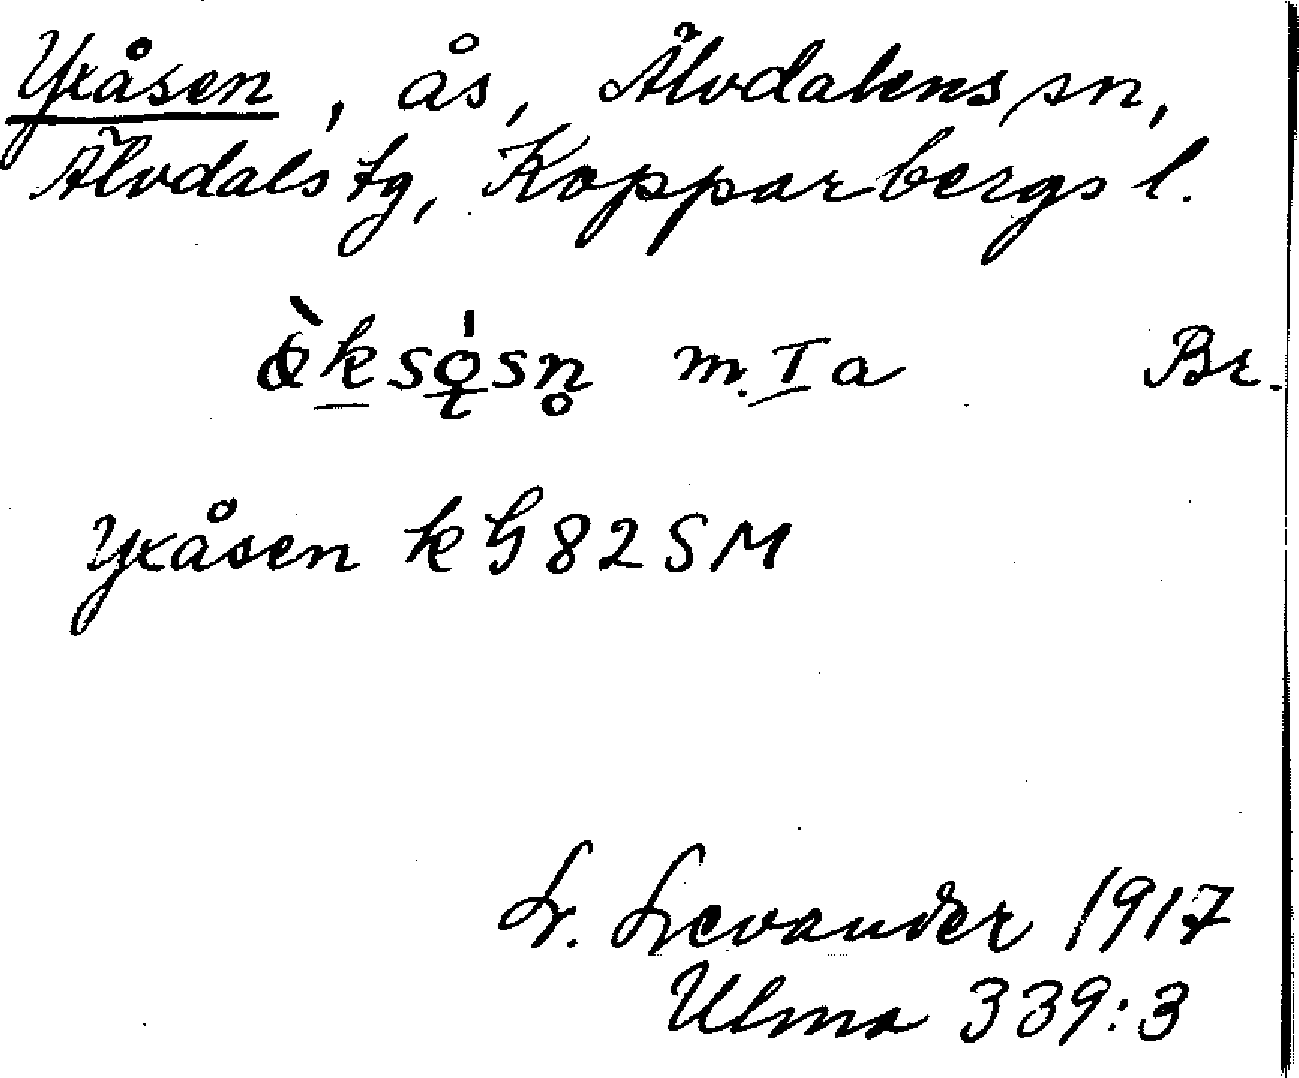 Yxåsen, ås, Älvdalens sn,
Älvdals tg, Kopparbergs l.
m. I a Br.
Yxåsen k G 82 SM
L. Levander 1917
Ulma 339:3